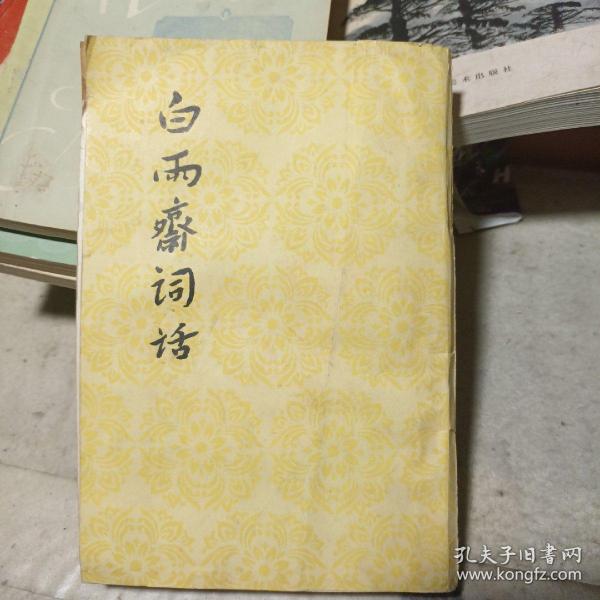 白雨齋词话
术出版社
孔夫子旧書网
www.kongfz.com